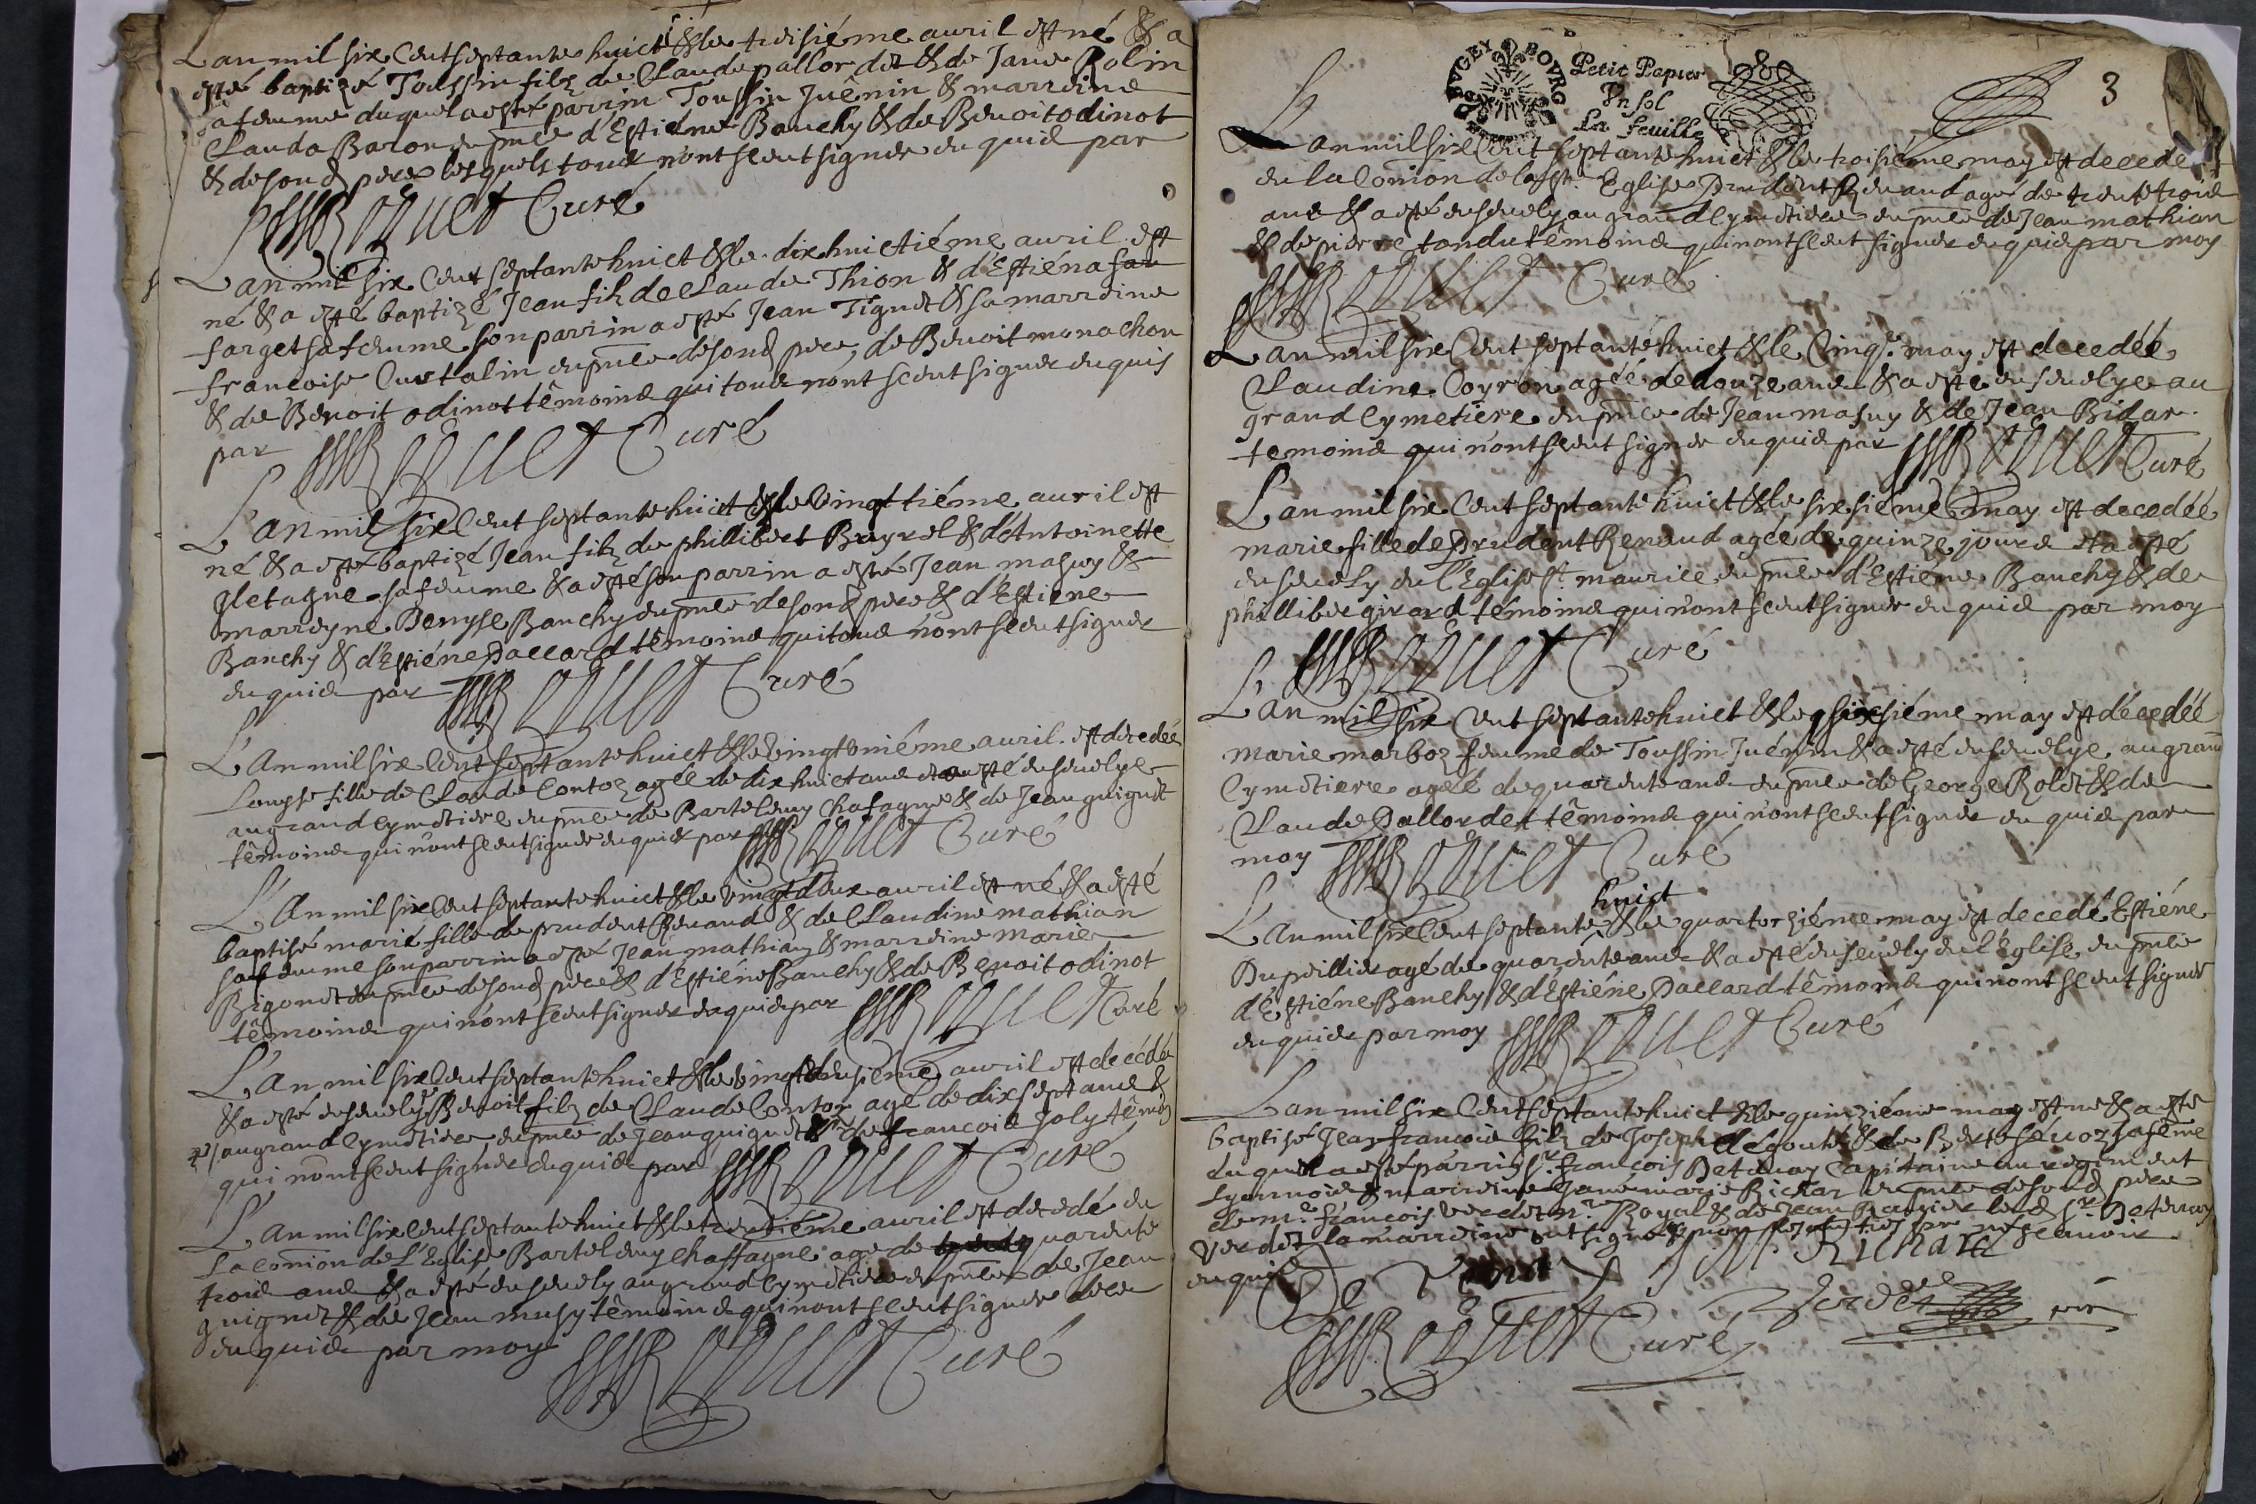 L'an mil six cent septante huict & le troisiéme auril est né & a
esté baptizé Toussin filz de Claude pallordet & de Jane Rolin
sa femme duquel a esté parrin Toussin Juénin & marreine
Clauda Baron en pñce d'Estiéne Banchy & de Benoit odinot
& de sond pere lesquels tous n'ont sceut signer enquis par
Curé
L'an mil six cent septante huict & le dixhuictiéme auril est
né & a esté baptizé Jean filz de Claude Thion & d'Estiéna far
farget sa femme son parrin a esté Jean Tignet & sa marreine
francoise Curtalin en pñce de sond pere, de Benoit monachon
& de Benoit odinot têmoins qui tous n'ont sceut signer enquis
par Curé
L'an mil six cent septante huict & le vingttiéme auril est
né & a esté baptizé Jean filz de phillibert Buyret & d'Antoinette
gletagne sa femme & a esté son parrin a esté Jean masuy &
marreyne Denyse Banchy en pñce de sond pere & d'Estiene
Banchy & d'Estiéne Daccard têmoins qui tous n'ont sceut signer
enquis par Curé
L'An mil six cent septante huict & le vingtvniéme auril est decedée
Louyse fille de Claude Contoz agée de dix huict ans et a esté enseuelye
au grand cymetiere en pñce de Bartelemy Chafagne & de Jean guignet
têmoins qui n'ont sceut signer enquis par Curé
L'An mil six cent septante huict & le vingtdeux auril est né & a esté
baptisé marie fille de prudent Renaud & de Claudine mathian
sa femme son parrin a esté Jean mathian & marreine marie
Bigonet en pñce de sond pere & d'Estiéne Banchy & de Benoit odinot
têmoins qui n'ont sceut signer enquis par Curé
L'An mil six cent septante huict & le vingtdeusiéme auril est decédé
& a esté enseuely Benoit filz de Claude Contoz agé de dix sept ans &
au grand cymetiere en pñce de Jean guignet & de francois Joly têmoins
qui n'ont sceut signer enquis par Curé
L'an mil six cent septante huict & le trentiéme auril est decedé en
la comion de l'Eglise Bartelemy chaffagne agé de quarente
trois ans & a esté enseuely au grand cymetiere en pñce de Jean
guignet & de Jean musy têmoins qui n'ont sceut signer
enquis par moy Curé
BVGEY BOVRG
Petit Papier
Vn sol
La feuille
3
L'an mil six cent septante huict & le troisiéme may est decedé
en la Comion de la ste Eglise Prudent Renaud agé de trente trois
ans & a esté enseuely au grand cymetiere en pñce de Jean mathian
& de pierre tondu têmoins qui n'ont sceut signer enquis par moy
Curé
L'an mil six cent septante huict & le Cinqe may est decedée
Claudine Coyron agée de douze ans & a esté enseuelye au
grand cymetiere en pñce de Jean masuy & de Jean Bidar
temoins qui n'ont sceut signer enquis par Curé
L'an mil six cent septante huict & le sixsiéme may est decedée
marie fille de prudent Renaud agée de quinze jours et a esté
enseuely en l'Eglise st maurice en pñce d'Estiéne Banchy & de
phillibe girard têmoins qui n'ont sceut signer enquis par moy
Curé
L'an mil six cent septante huict & le sixsiéme may est décedée
marie marboz femme de Toussin Juénin & a esté enseuelye au grand
Cymetiere agée de quarente ans en pñce de George Rolet & de
Claude Pallordet têmoins qui n'ont sceut signer enquis par
moy Curé
huict
L'an mil six cent septante & le quartorziéme may est decedé Estiéne
Dupeillie agé de quarente ans & a esté enseuely en l'Eglise en pñce
d'Estiéne Banchy & d'Estiéne Daccard têmoins qui n'ont sceut signer
enquis par moy Curé
L'an mil six cent septante huict & le quinziéme may est né & a esté
baptisé Jean francois filz de Joseph & de sa féme
duquel a esté parrin sr francois Deternay Capitaine au regiment
Lyonnois & marreine Jane marie Richar en pñce de sond pere
de mr francois verdet nre Royal & de Jean lesd sr Deternay
Verdet la marreine ont signé &
enquis J M Richard
De Verdet
Curé